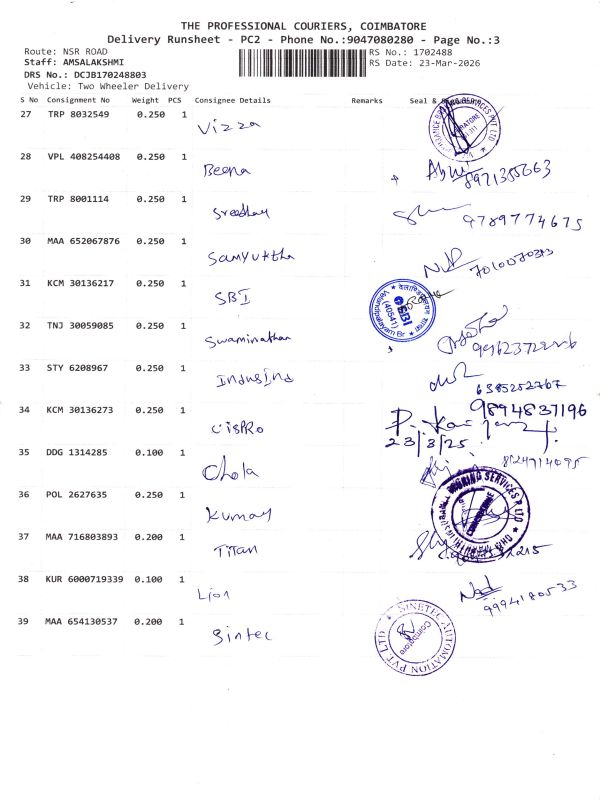 THE PROFESSIONAL COURIERS, COIMBATORE
Delivery Runsheet - PC2 - Phone No.:9047080280 - Page No.:3
Route: NSR ROAD
RS No.: 1702488
Staff: AMSALAKSHMI
RS Date: 23-Mar-2026
DRS No.: DCJB170248803
Vehicle: Two Wheeler Delivery
S No Consignment No Weight PCS Consignee Details Remarks Seal &
27 TRP 8032549 0.250 1 Vizza
28 VPL 408254408 0.250 1 Beena
29 TRP 8001114 0.250 1 Sreedhay 9789774675
30 MAA 652067876 0.250 1 Samyuktha
31 KCM 30136217 0.250 1 SBI
SBI
(40541)
32 TNJ 30059085 0.250 1 Swaminathan
33 STY 6208967 0.250 1 IndusInd 6385252767
34 KCM 30136273 0.250 1 CisPRO 9894837196
23/3/25
35 DDG 1314285 0.100 1 Chola 8124714095
36 POL 2627635 0.250 1 Kumay
37 MAA 716803893 0.200 1 Titan
38 KUR 6000719339 0.100 1 Lion 9994180533
39 MAA 654130537 0.200 1 Sintec
SINETEC AUTOMATION PVT. LTD
Coimbatore